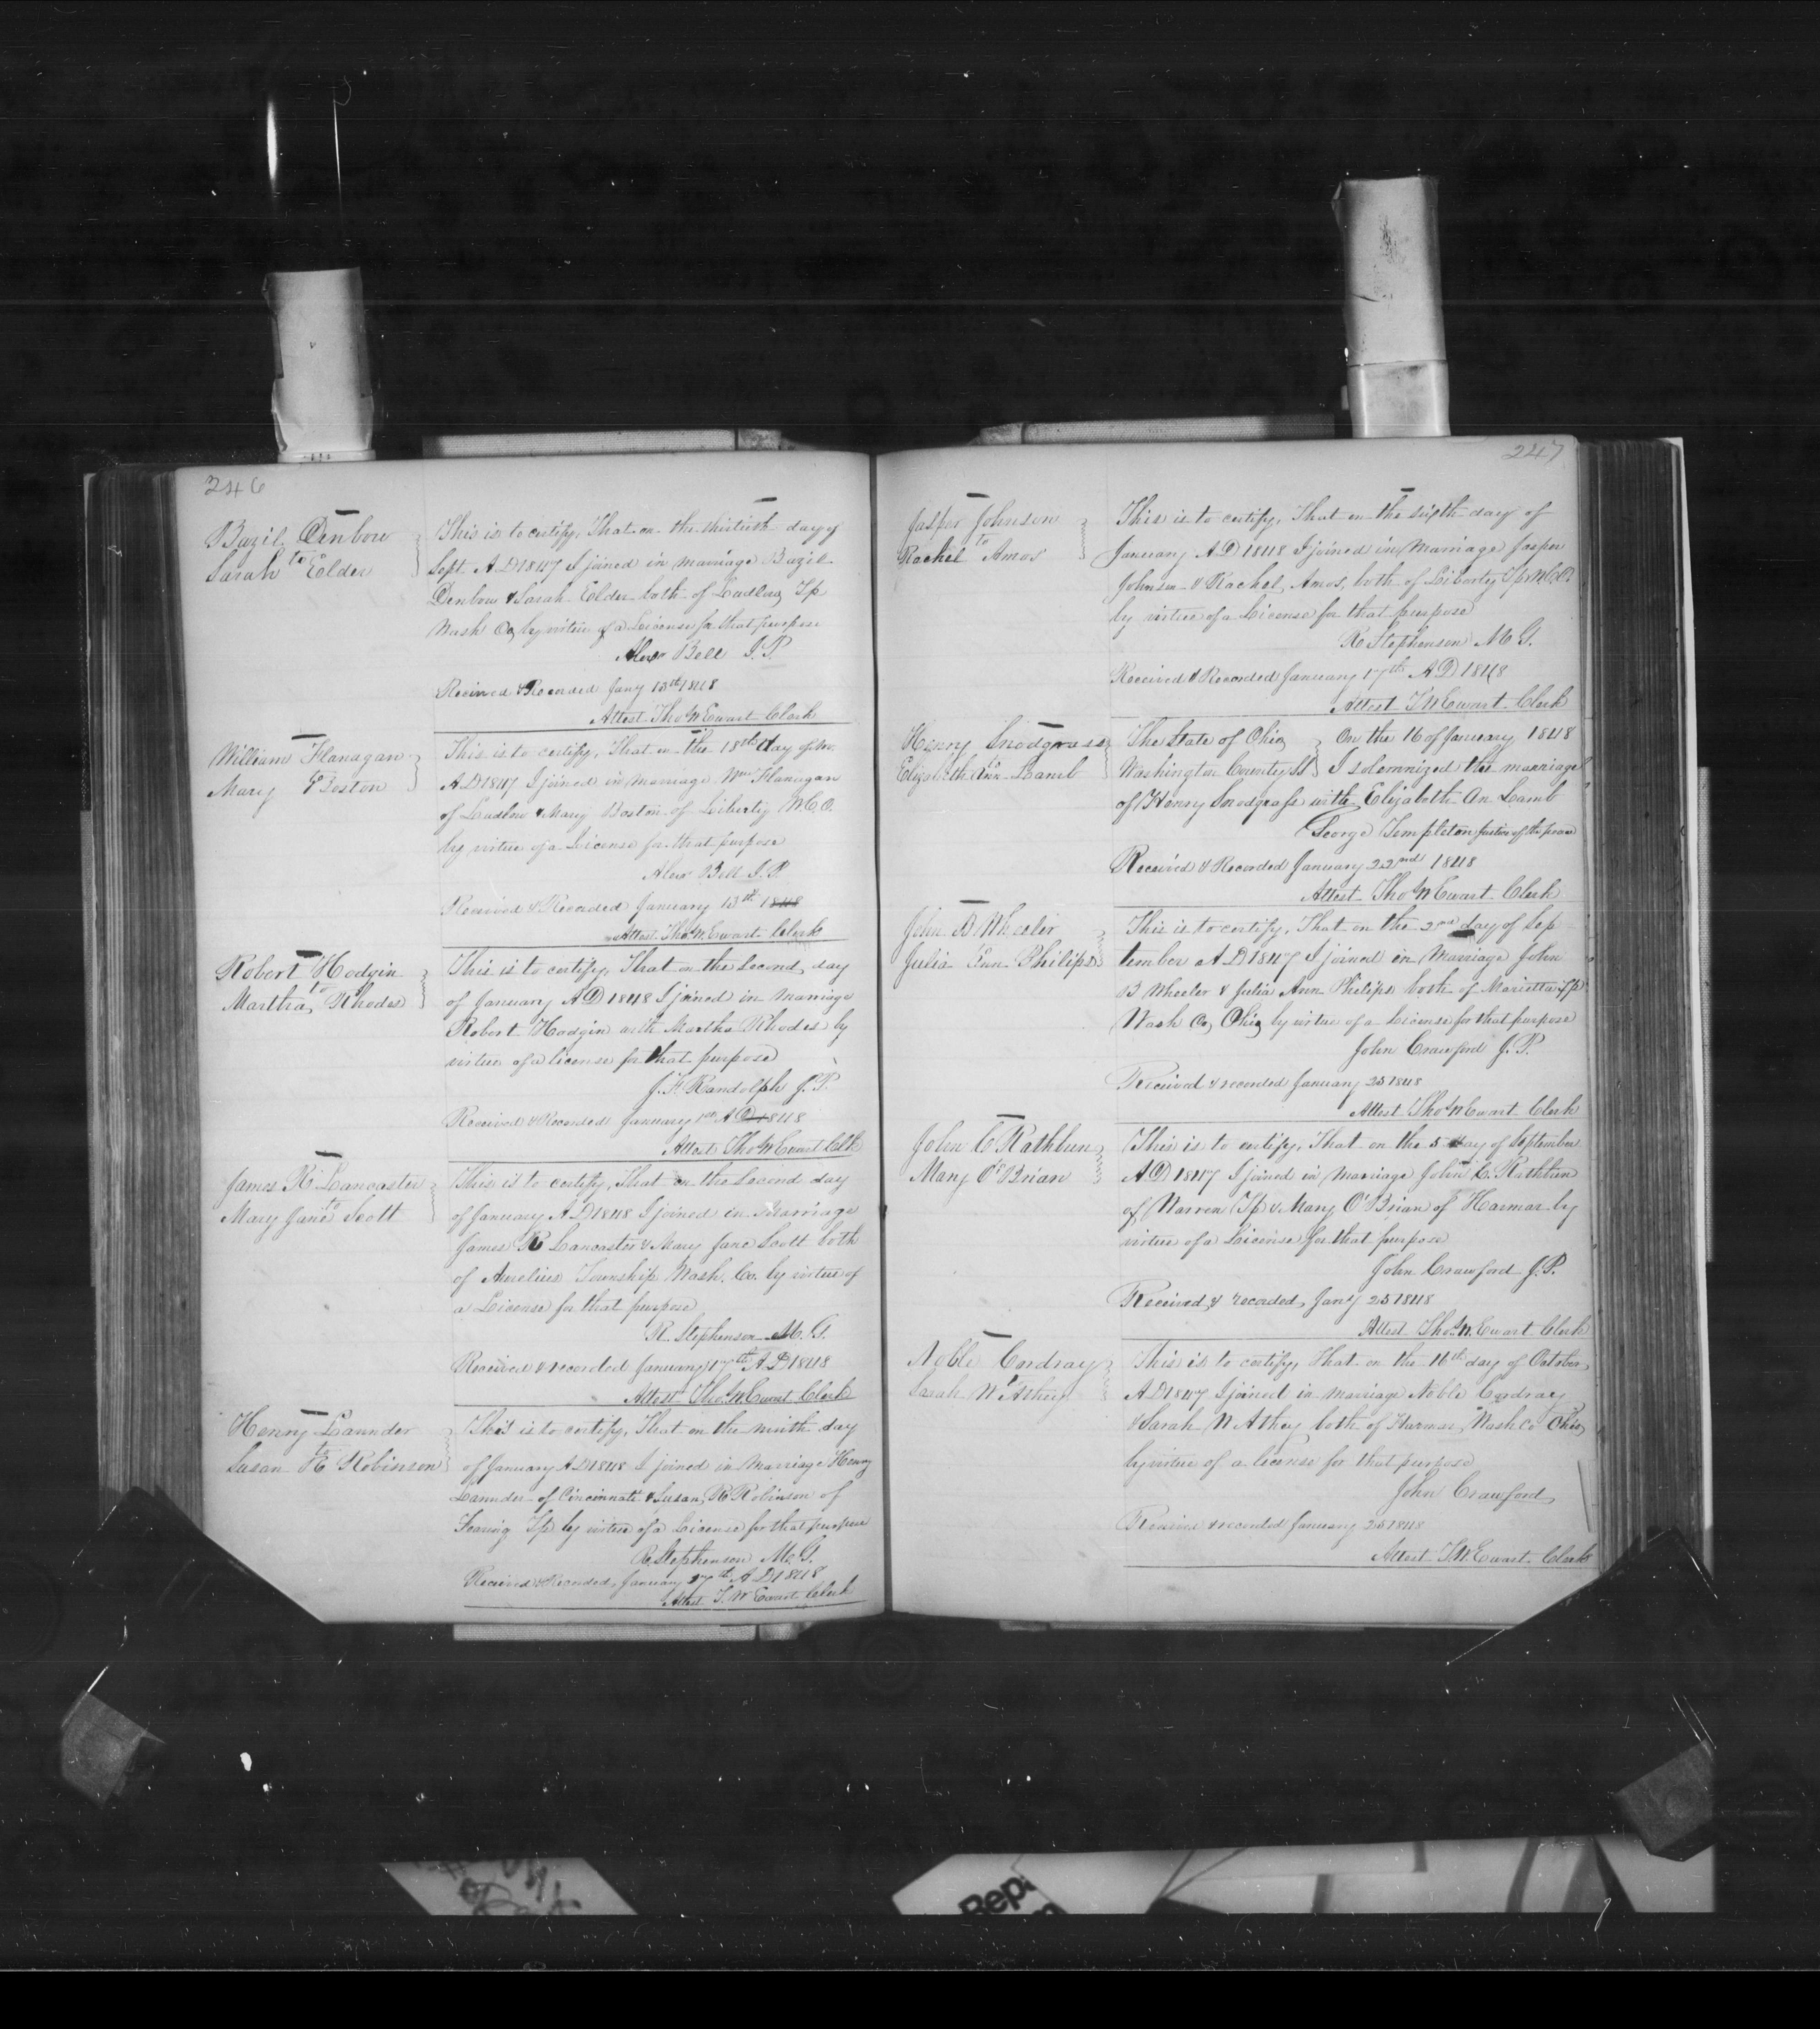 246
Bazil Denbow
to
Sarah Eolder
This is to certify, That on the thirtieth day of
Sept. A D 1847 I joined in marriage Bazil
Denbow & Sarah Eolder both of Ludlow Tp
Wash Co, by virtue of a License for that purpose
Alexr Bell J. P.
Received & Recorded Jany 13th 1848
Attest Thos W Ewart Clerk
William Flanagan
to
Mary Boston
This is to certify, That on the 18th day of
A D 1847 I joined in marriage Wm Flanagan
of Ludlow & Mary Boston of Liberty W. C. O.
by virtue of a License for that purpose
Alexr Bell J. P.
Received & Recorded January 13th 1848
Attest Thos W. Ewart Clerk
Robert Hodgin
to
Martha Rhodes
This is to certify, That on the second day
of January A D 1848 I joined in marriage
Robert Hodgin with Martha Rhodes by
virtue of a license for that purpose
J. F. Randolph J. P.
Received & Recorded January A D 1848
Attest Thos W Ewart Clk
James R. Lancaster
to
Mary Jane Scott
This is to certify, That on the second day
of January A D 1848 I joined in Marriage
James R Lancaster & Mary Jane Scott both
of Aurelius Township Wash. Co. by virtue of
a License for that purpose
R. Stephenson M. G.
Received & recorded January 17th A D 1848
Attest Thos W Ewart Clerk
Henry Launder
to
Susan R Robinson
This is to certify, That on the ninth day
of January A D 1848 I joined in Marriage Henry
Launder of Cincinnati & Susan R Robinson of
Fearing Tp by virtue of a License for that purpose
R. Stephenson M. G.
Received & Recorded January 17th A D 1848
Attest T. W Ewart Clerk
247
Jasper Johnson
to
Rachel Amos
This is to certify, That on the sixth day of
January A D 1848 I joined in Marriage Jasper
Johnson & Rachel Amos, both of Liberty Tp W. C. O.
by virtue of a License for that purpose
R Stephenson M. G.
Received & Recorded January 17th A D 1848
Attest T W Ewart Clerk
Henry Snodgrass
to
Elizabeth Ann Lamb
The State of Ohio } On the 16 of January 1848
Washington County SS } I solemnized the marriage
of Henry Snodgrass with Elizabeth An Lamb
George Templeton Justice of the peace
Received & Recorded January 22nd 1848
Attest Thos W Ewart Clerk
John B Wheeler
Julia Ann Philips
This is to certify, That on the 2nd day of Sep
tember A D 1847 I joined in Marriage John
B Wheeler & Julia Ann Philips both of Marietta Tp
Wash Co, Ohio by virtue of a License for that purpose
John Crawford J. P.
Received & recorded January 25 1848
Attest Thos W Ewart Clerk
John C Rathbun
to
Mary O'Brian
This is to certify, That on the 5 day of September
A D 1847 I joined in marriage John C. Rathbun
of Warren Tp & Mary O'Brian of Harmar by
virtue of a License for that purpose
John Crawford J. P.
Received & recorded Jany 25 1848
Attest Thos W. Ewart Clerk
Noble Cordray
to
Sarah W Athey
This is to certify, That on the 16th day of October
A D 1847 I joined in marriage Noble Cordray
& Sarah W Athey both of Harmar, Wash Co Ohio,
by virtue of a license for that purpose
John Crawford
Received & recorded January 25 1848
Attest T. W. Ewart Clerk